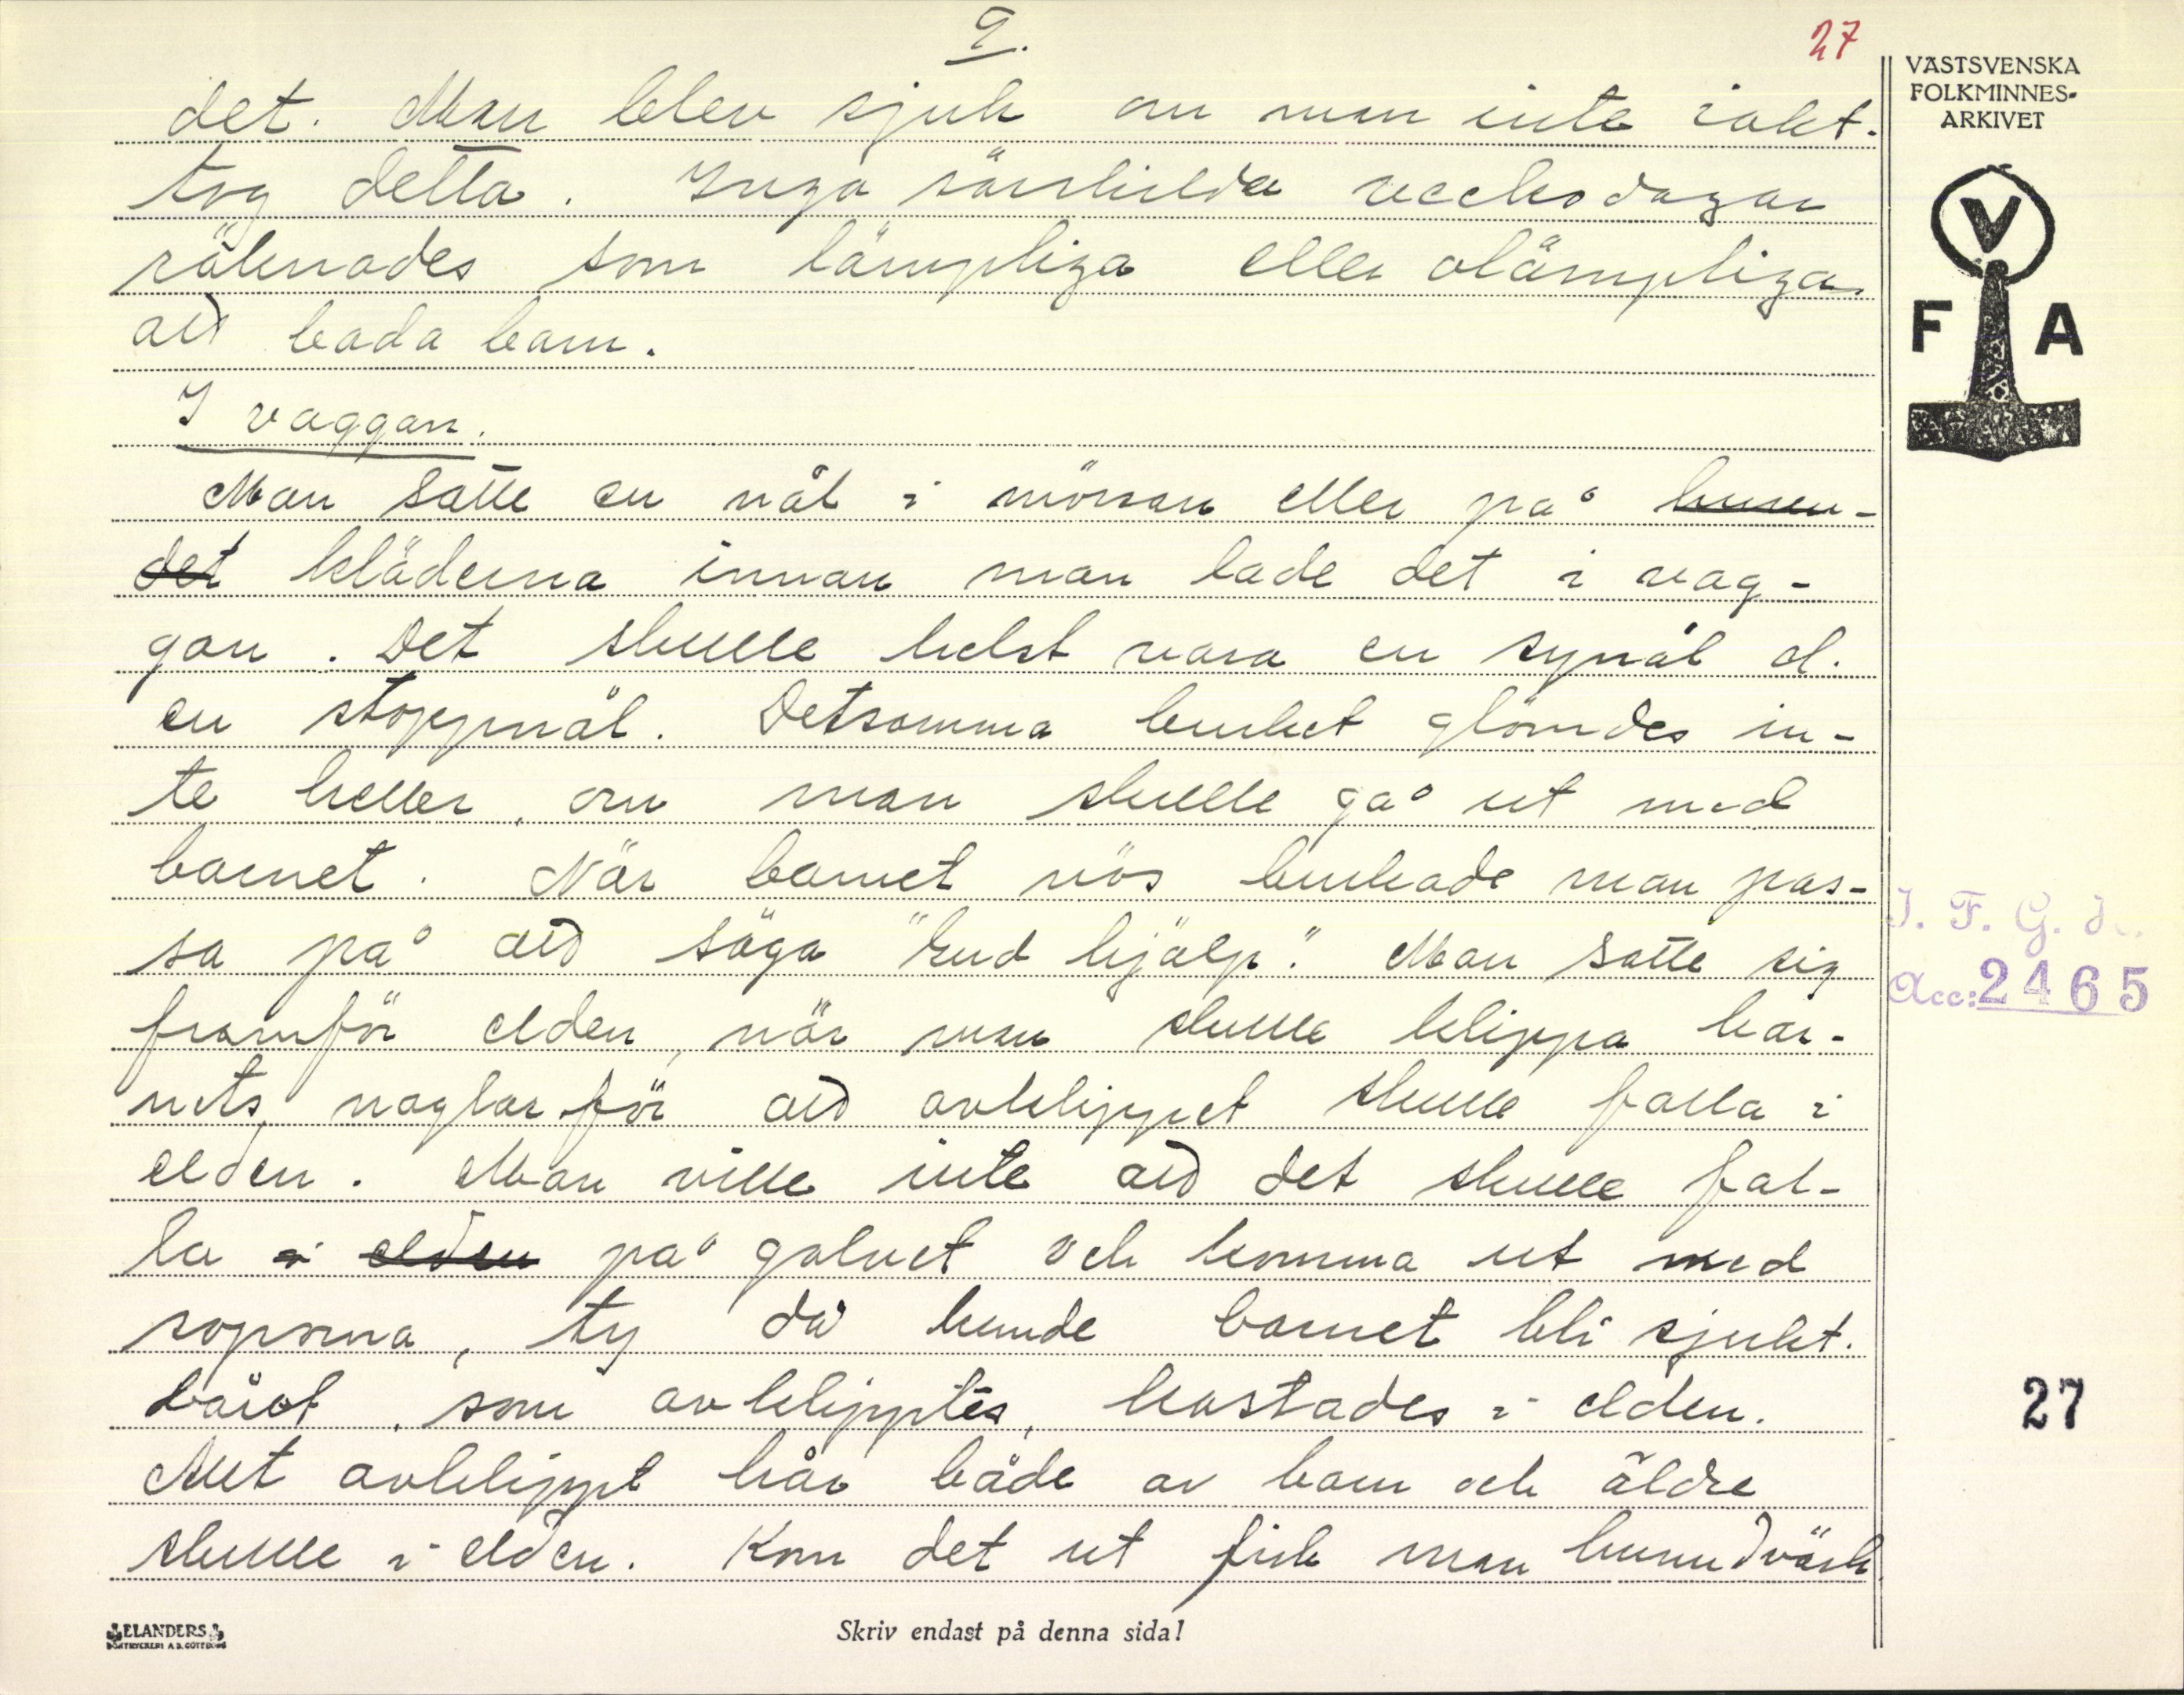 9.
27
det. Man blev sjuk om man inte iakt-
tog detta. Inga särskilda veckodagar
räknades som lämpliga eller olämpliga
att bada barn.
I vaggan.
Man satte en nål i mössan eller på huvu-
det kläderna innan man lade det i vag-
gan. Det skulle helst vara en synål el.
en stoppnål. Detsamma bruket glömdes in-
te heller, om man skulle gå ut med
barnet. När barnet nös brukade man pas-
sa på att säga "Gud hjälp". Man satte sig
framför elden, när man skulle klippa bar-
nets naglar för att avklippet skulle falla i
elden. Man ville inte att det skulle fal-
la i elden på golvet och komma ut med
soporna, ty då kunde barnet bli sjukt.
Håret, som avklipptes, kastades i elden.
Allt avklippt hår både av barn och äldre
skulle i elden. Kom det ut fick man huvudvärk
VÄSTSVENSKA
FOLKMINNES-
ARKIVET
V
F A
I. F. G. H.
Acc: 2465
27
ELANDERS
BOKTRYCKERI A.B. GÖTEBORG
Skriv endast på denna sida!